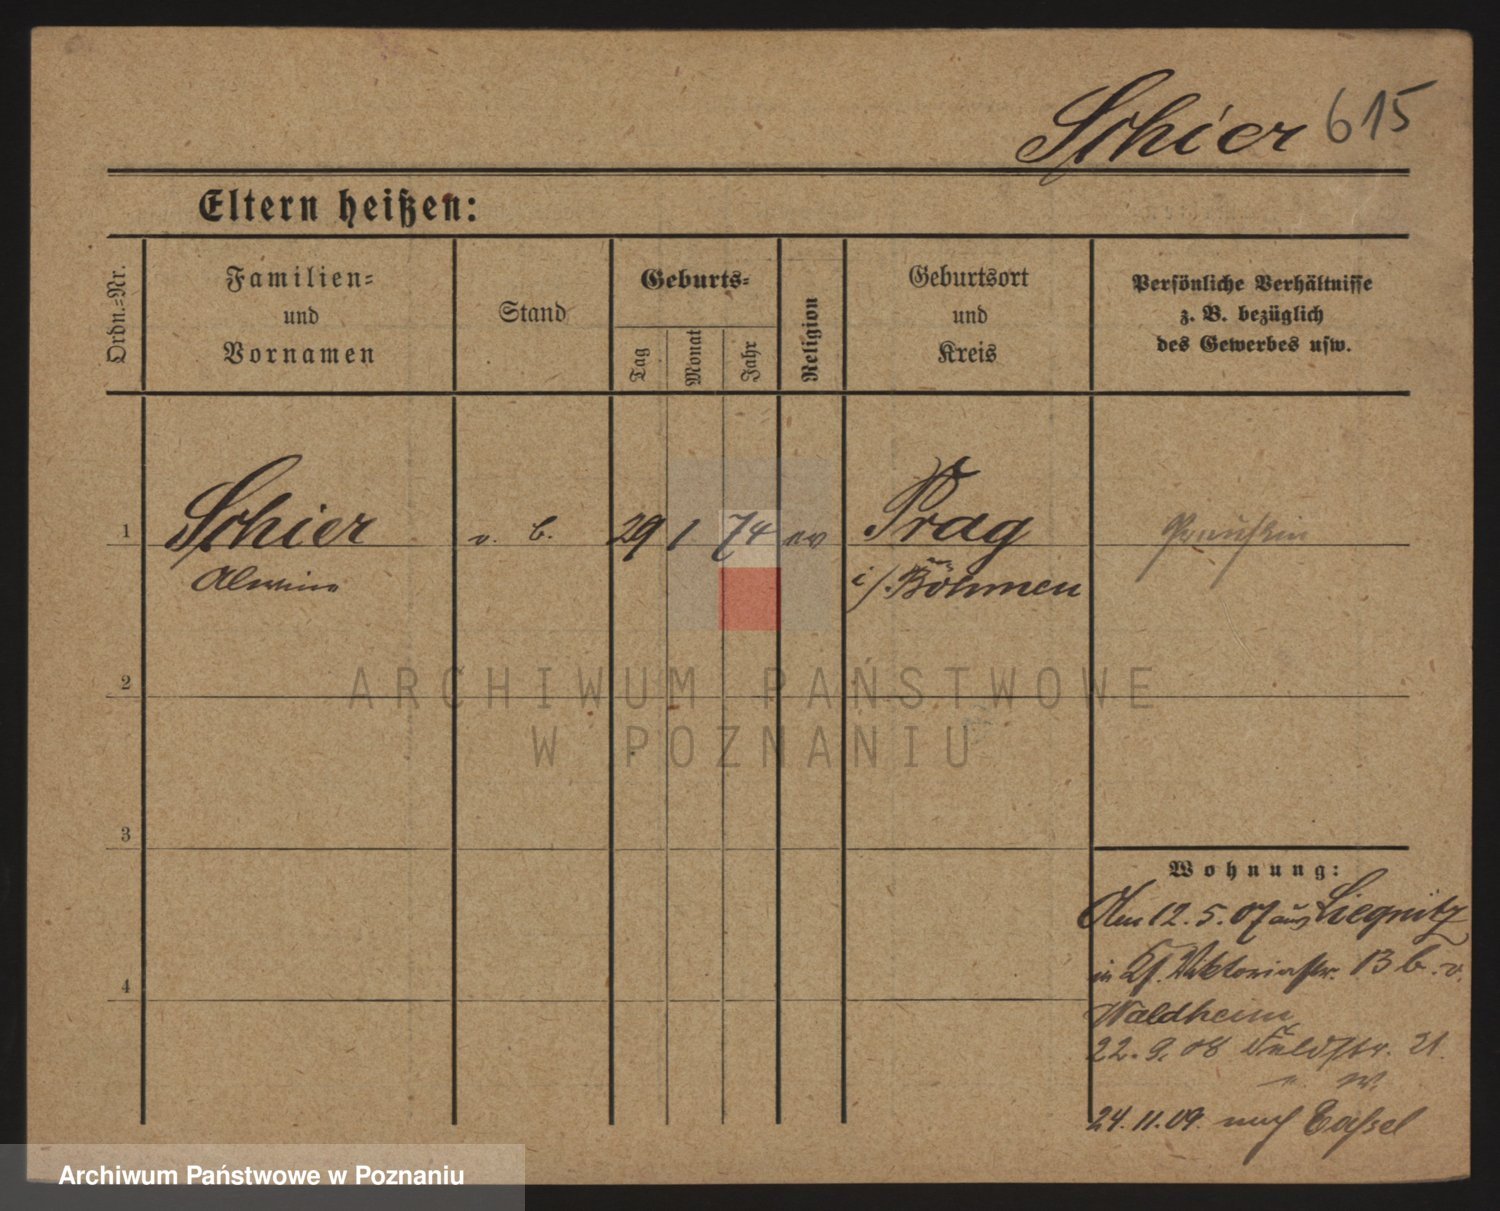 Schier 615
Eltern heißen:
Ordn.=Nr.
Familien=
und
Vornamen
Stand
Geburts=
Tag
Monat
Jahr
Religion
Geburtsort
und
Kreis
Persönliche Verhältnisse
z. B. bezüglich
des Gewerbes usw.
1 Schier v. b. 29 1 74 ev Prag
Alwine i/ Böhmen
ARCHIWUM PAŃSTWOWE
W POZNANIU
2
3
4
Wohnung:
Am 12. 5. 07 aus Liegnitz
in Viktoriastr. 13 b. v.
Waldheim
22. 9. 08 Feldstr. 21.
24. 11. 09. nach Cassel
Archiwum Państwowe w Poznaniu